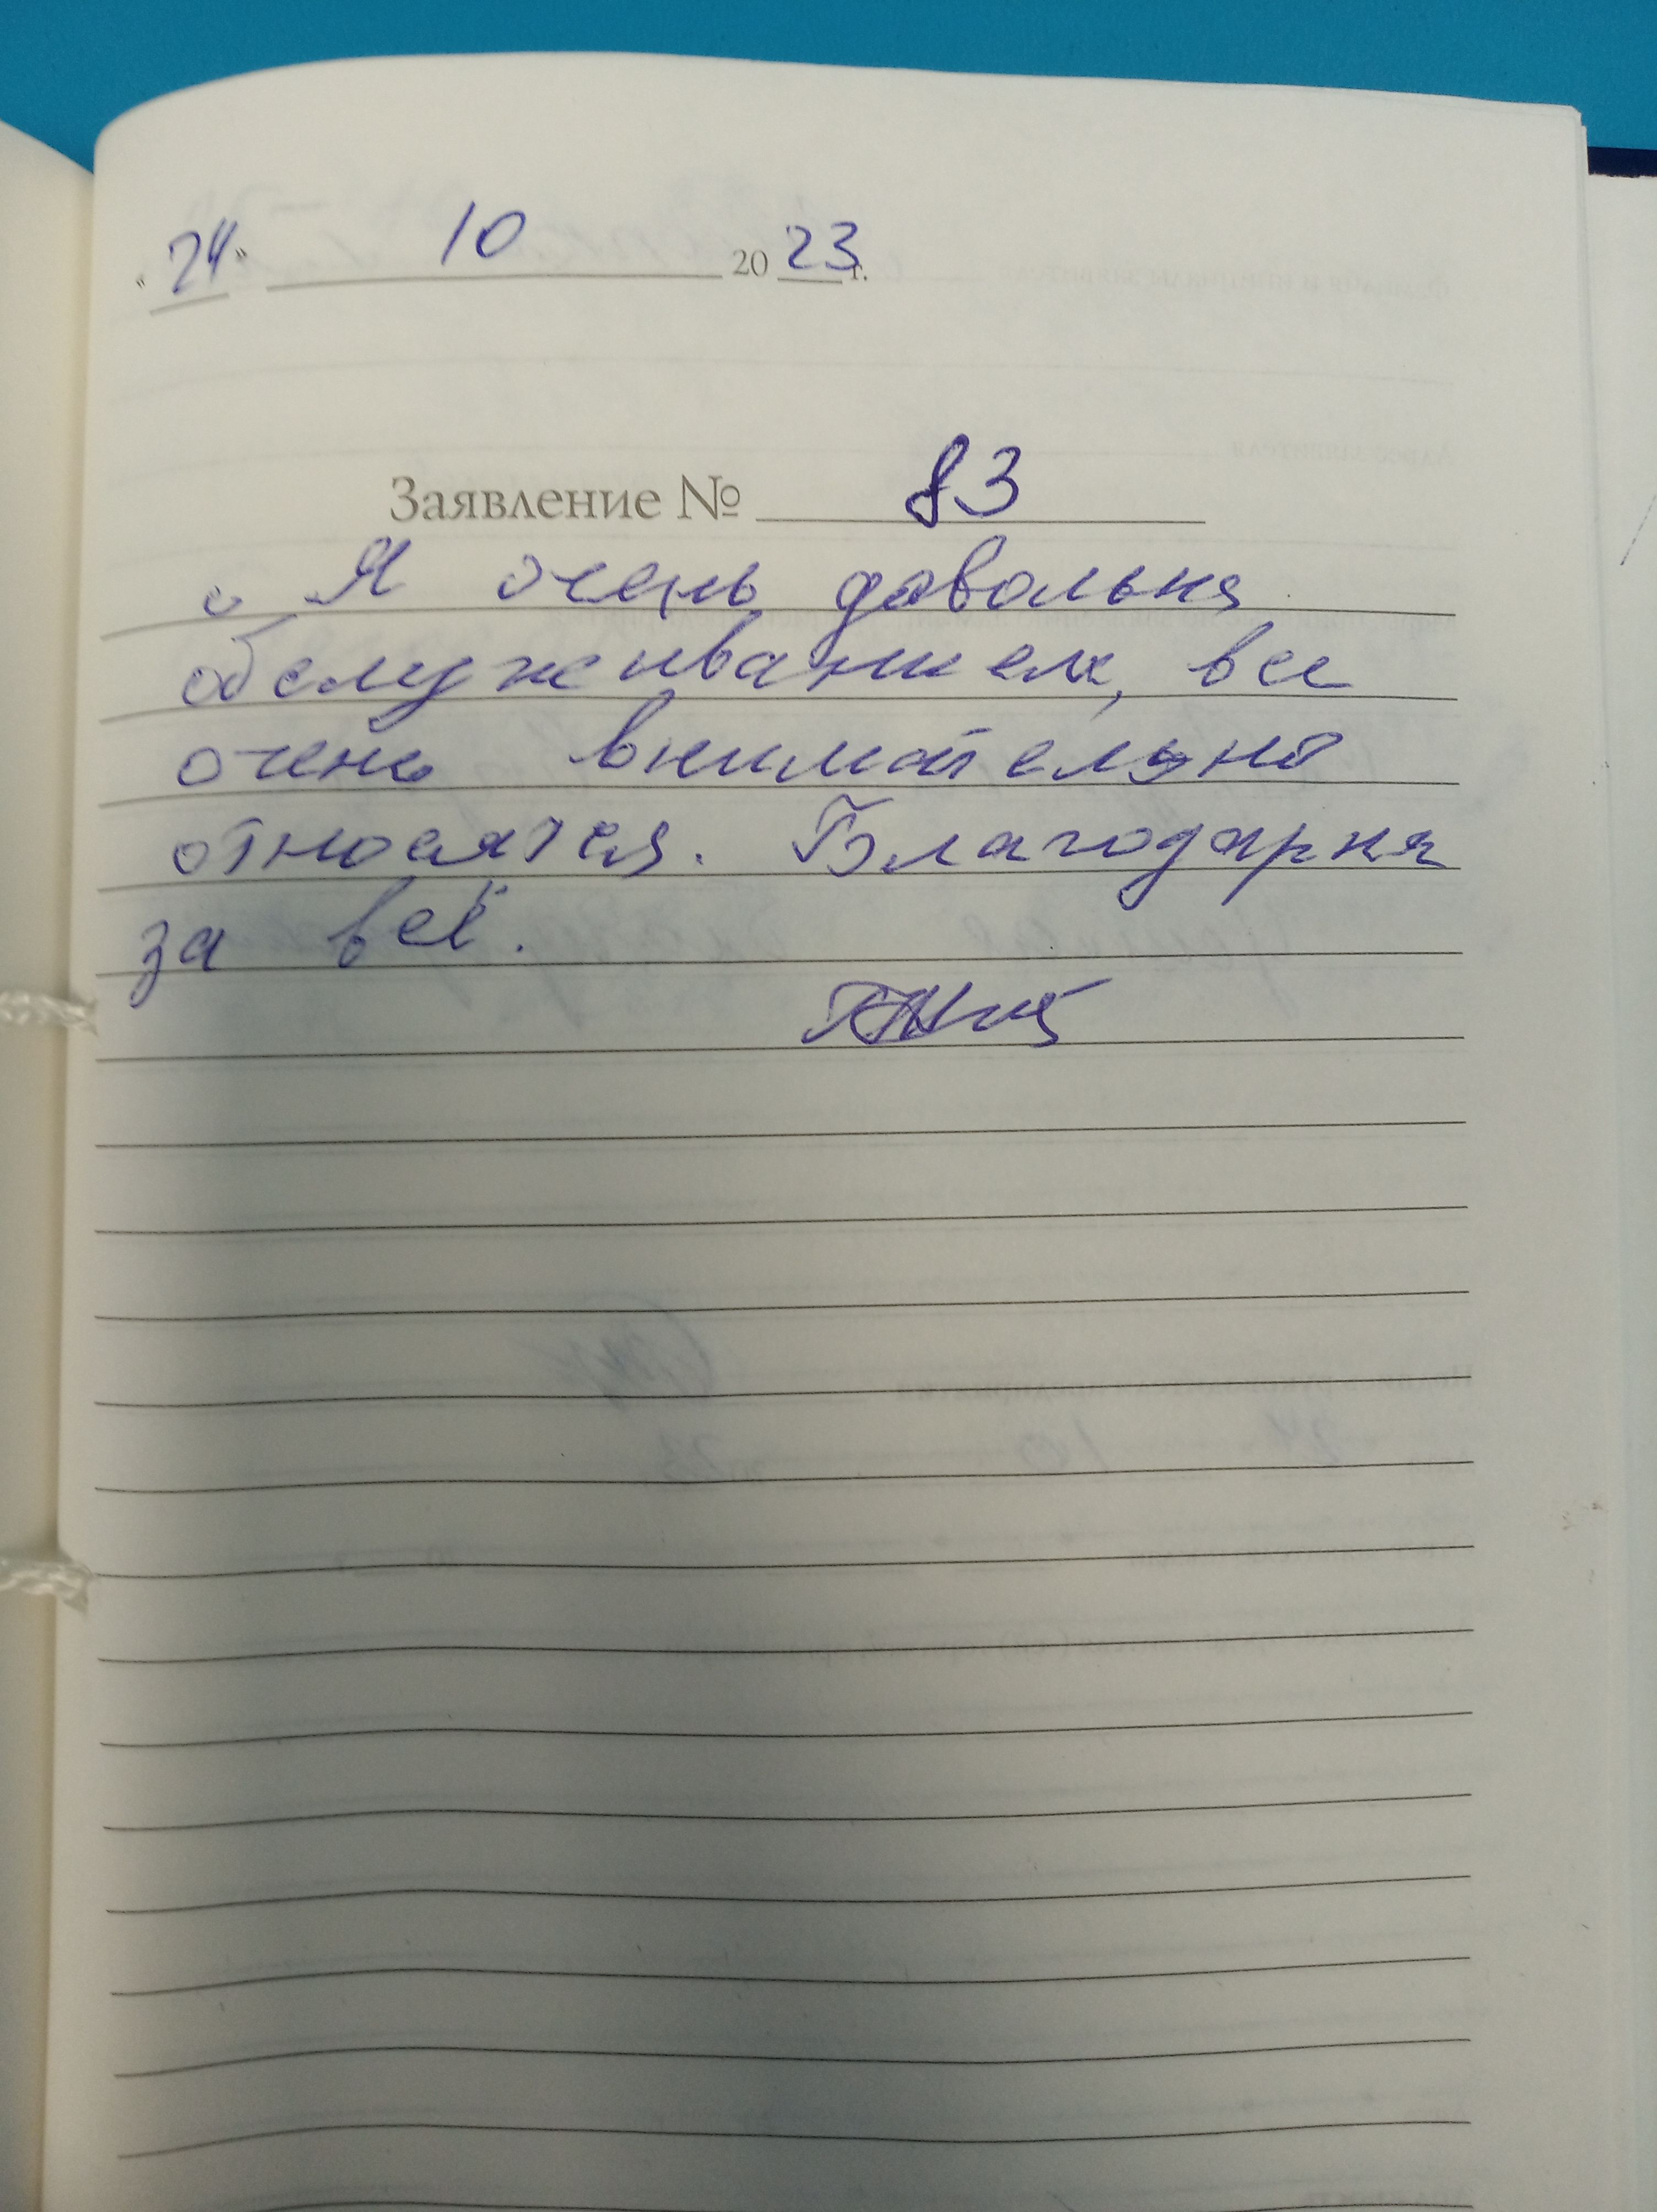 " 24 " 10 20 23 г.
Заявление № 83
Я очень довольна
обслуживанием, все
очень внимательно
относятся. Благодарна
за всё.